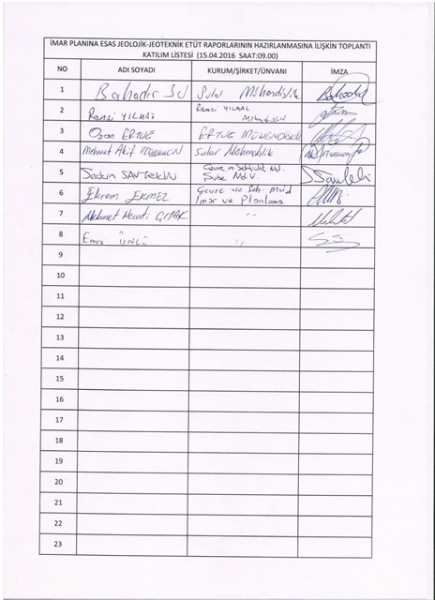 İMAR PLANINA ESAS JEOLOJİK-JEOTEKNİK ETÜT RAPORLARININ HAZIRLANMASINA İLİŞKİN TOPLANTI
KATILIM LİSTESİ (15.04.2016 SAAT:09.00)
NO ADI SOYADI KURUM/ŞİRKET/ÜNVANI İMZA
1 Bahadır SU Sular Mühendislik
2 Remzi YILMAZ Remzi YILMAZ
Mühendislik
3 Ozan ERTUĞ ERTUĞ MÜHENDİSLİK
4 Mehmet Akif Sular Mühendislik
5 Seçkin SAVTEKİN Çevre ve Şehircilik Müd.
Şube Müd. V.
6 Ekrem EKMEZ Çevre ve Şeh. Müd
İmar ve Planlama
7 Mehmet Necati ''
8 Emre ÜNLÜ ''
9
10
11
12
13
14
15
16
17
18
19
20
21
22
23